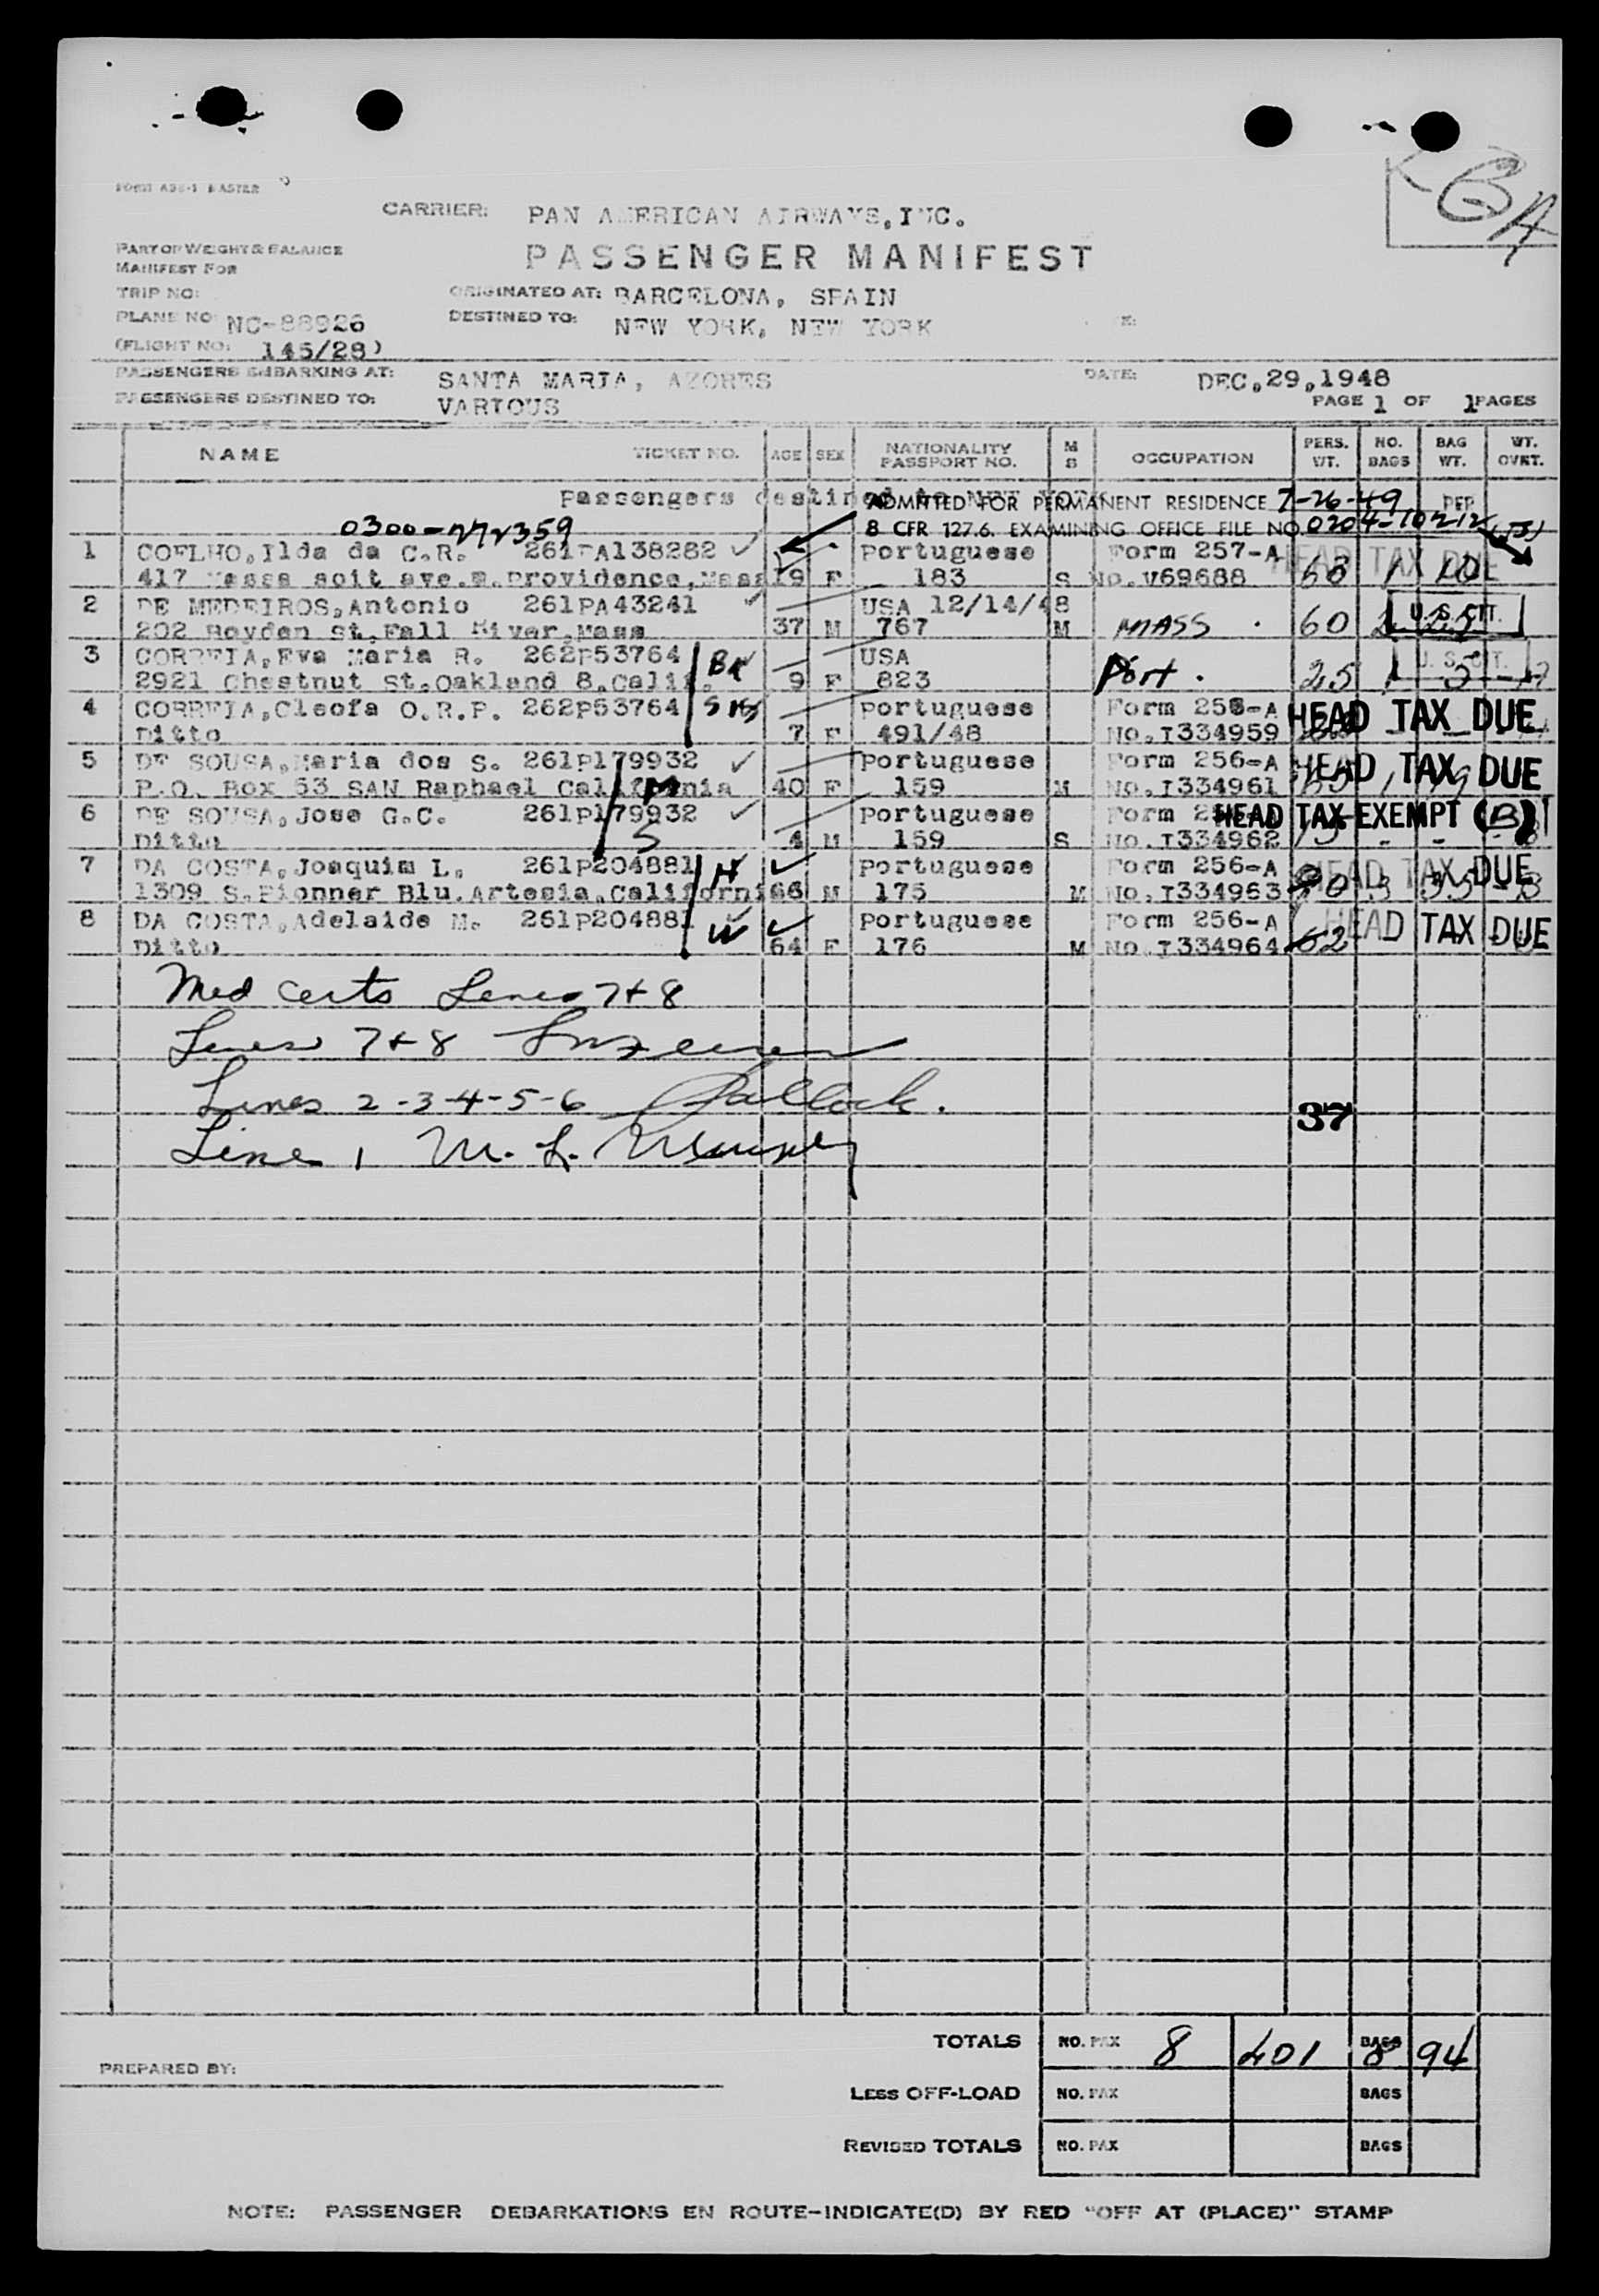 CARRIER: PAN AMERICAN AIRWAYS, INC.
PASSENGER MANIFEST
PART OF WEIGHT & BALANCE
MANIFEST FOR
TRIP NO:
ORIGINATED AT: BARCELONA, SPAIN
PLANE NO: NC-88926
DESTINED TO: NEW YORK, NEW YORK
(FLIGHT NO: 145/28)
PASSENGERS EMBARKING AT: SANTA MARIA, AZORES
DATE: DEC.29,1948
PASSENGERS DESTINED TO: VARIOUS
PAGE 1 OF 1 PAGES
NAME TICKET NO. AGE SEX NATIONALITY PASSPORT NO. M S OCCUPATION PERS. WT. NO. BAGS BAG WT. WT. OVRT.
Passengers destined to New York
ADMITTED FOR PERMANENT RESIDENCE 7-26-49 PER
0300-272359
8 CFR 127.6. EXAMINING OFFICE FILE NO. 0204-10212
1 COELHO, Ilda da C.R. 261PA138282 Portuguese Form 257-A HEAD TAX DUE
417 Massa soit ave.E.Providence,Mass 19 F 183 S No.V69688 60 1 10
2 DE MEDEIROS, Antonio 261PA43241 USA 12/14/48 U.S. CIT.
202 Boyden St.Fall River,Mass 37 M 767 M MASS. 60 2
3 CORREIA, Eva Maria R. 262P53764 USA U.S. CIT.
2921 Chestnut St.Oakland 8,Calif. 9 F 823 Port. 25 1
4 CORREIA, Cleofa O.R.P. 262P53764 Portuguese Form 256-A HEAD TAX DUE
Ditto 7 F 491/48 No.I334959
5 DE SOUSA, Maria dos S. 261P179932 Portuguese Form 256-A HEAD TAX DUE
P.O. Box 53 SAN Raphael California 40 F 159 M No.I334961
6 DE SOUSA, Jose G.C. 261P179932 Portuguese Form HEAD TAX EXEMPT (B)
Ditto 4 M 159 S No.I334962 15 - -
7 DA COSTA, Joaquim L. 261P204881 H Portuguese Form 256-A HEAD TAX DUE
1309 S.Pionner Blu.Artesia,California 66 M 175 M No.I334963 3 35
8 DA COSTA, Adelaide M. 261P204881 W Portuguese Form 256-A HEAD TAX DUE
Ditto 64 F 176 M No.I334964 62
Med certs Lines 7+8
Lines 7+8
Lines 2-3-4-5-6
37
Line 1 M. L.
TOTALS NO. PAX 8 401 BAGS 8 94
PREPARED BY:
LESS OFF-LOAD NO. PAX BAGS
REVISED TOTALS NO. PAX BAGS
NOTE: PASSENGER DEBARKATIONS EN ROUTE-INDICATE(D) BY RED "OFF AT (PLACE)" STAMP